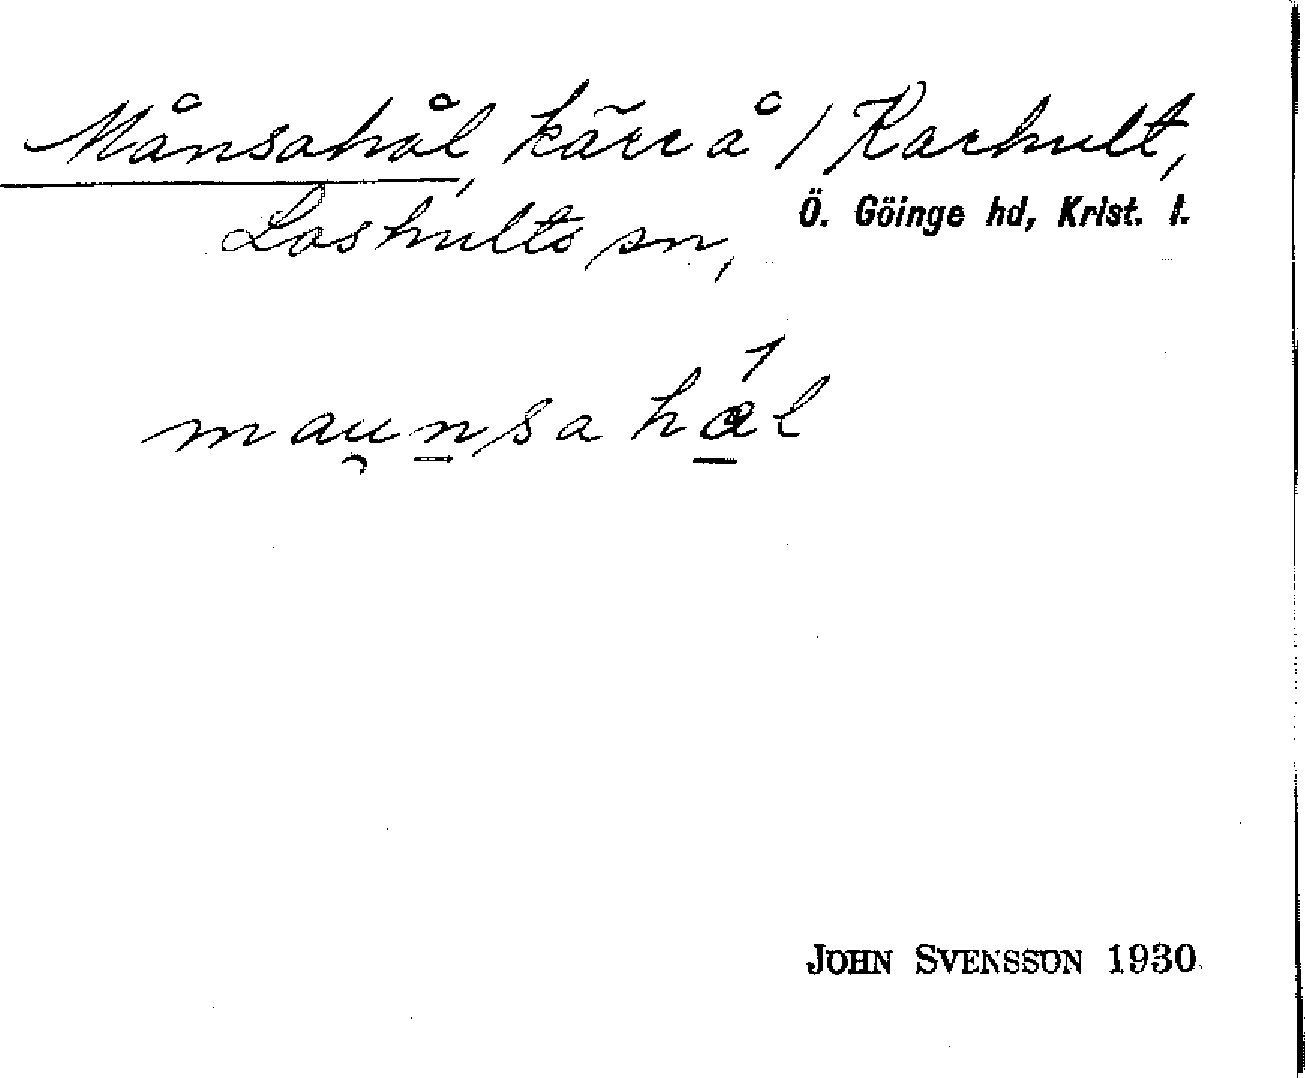 Månsahål, kärr å 1 Karhult,
Loshults sn, Ö. Göinge hd, Krist. l.
mau̯n̲sa hǻ̲l
JOHN SVENSSON 1930